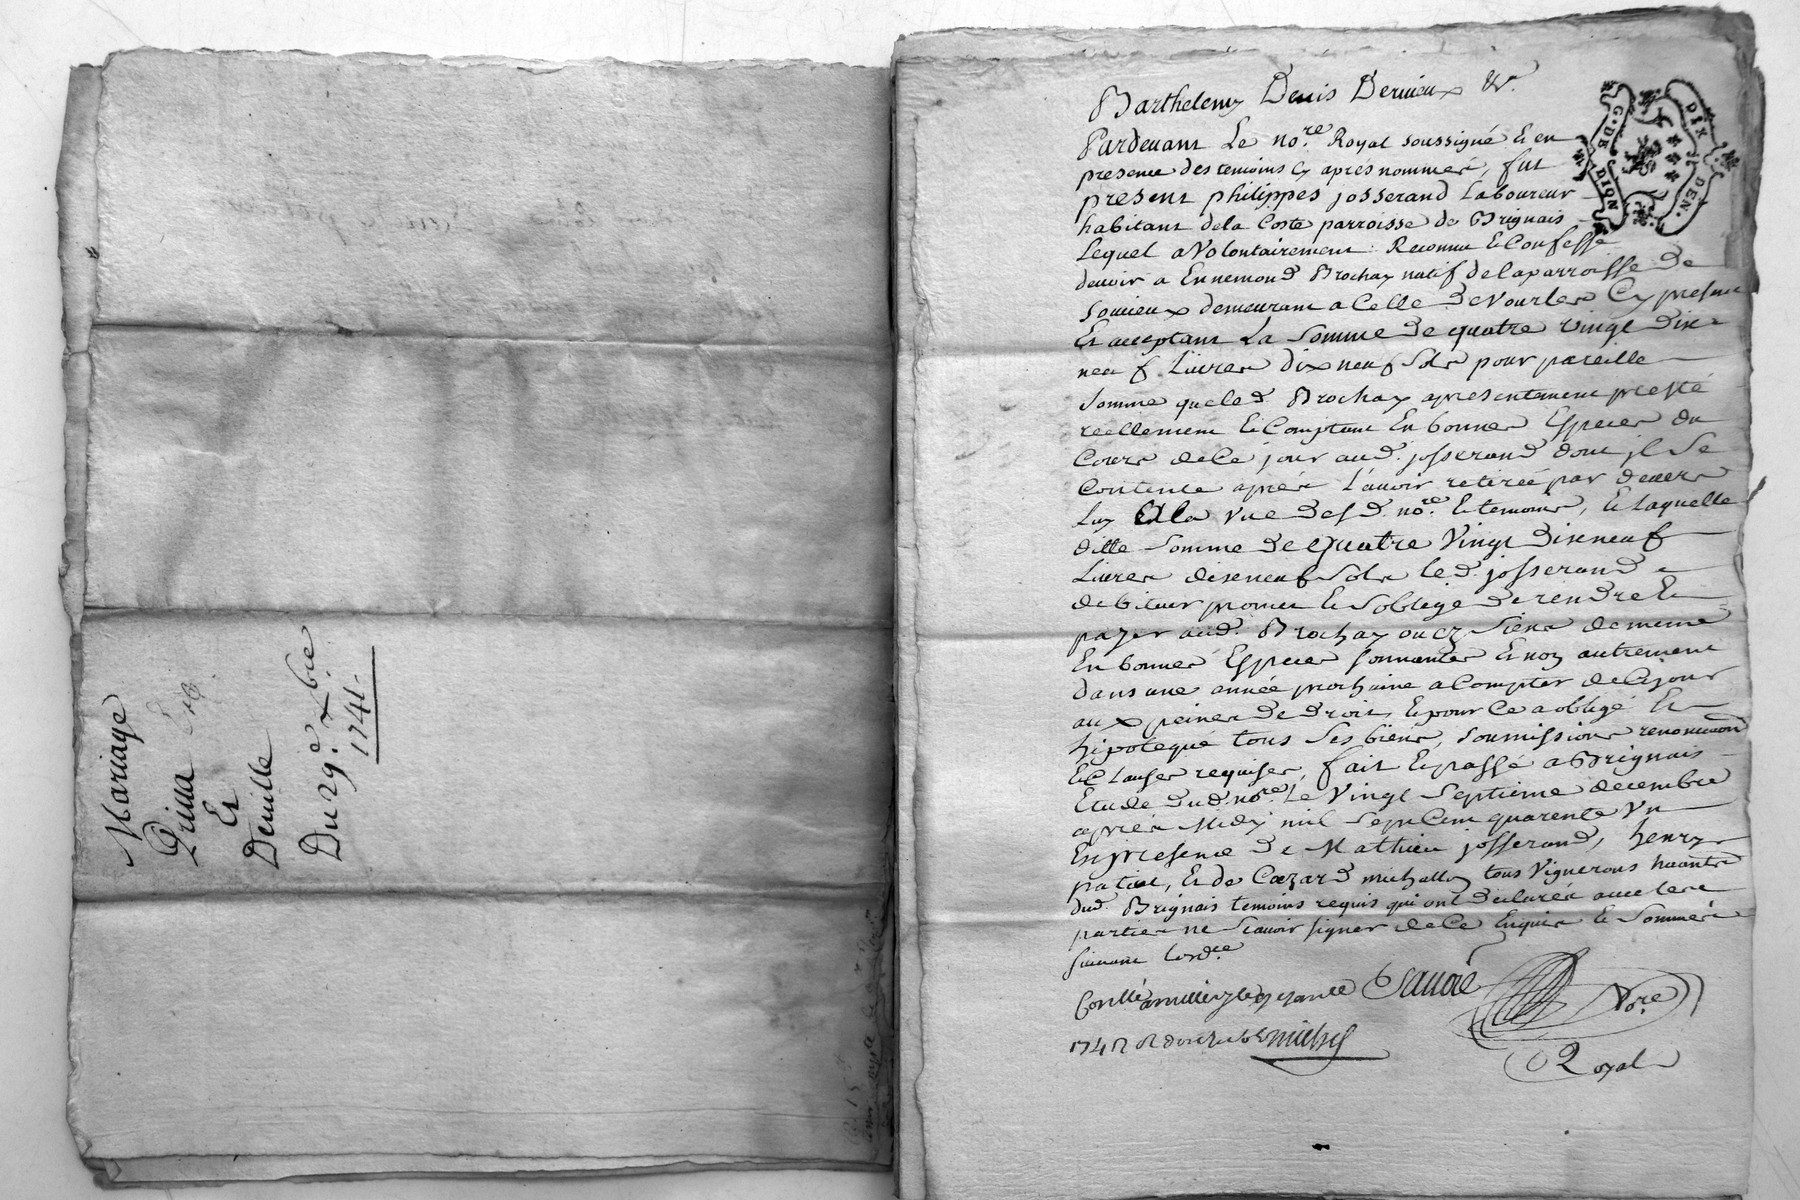 Mariage
Prilla
Et
Deville
Du 29e. xbre
1741.
Barthelemy Denis Dervieux &a.
Pardevant Le nore. Royal soussigné Et en
presence des temoins cy aprés nommés, fut
present philippes josserand Laboureur
habitant dela Coste parroisse de Brignais
Lequel a Volontairement Reconnu Et Confessé
devoir a Ennemond Brochay natif de la parroisse de
Soucieux demeurant a Celle de Vourles Cy present
Et acceptant La Somme de quatre vingt dix
neuf Livres dix neuf Sols pour pareille
Somme que led Brochay a presentement presté
reellement Et Comptant En bonnes Especes du
Cours de Ce jour aud. josserand dont jl Se
Contente aprés L'avoir retirée par devers
Luy Et a la vue desd. nore. Et temoins, Et Laquelle
ditte Somme de quatre Vingt dixneuf
Livres dixneuf Sols led. josserand
debiteur promet Et S'oblige de rendre Et
payer aud. Brochay ou ez Siens de meme
En bonnes Especes Sonnantes Et non autrement
dans une année prochaine a Compter de Ce jour
aux peines de droit, Et pour Ce a obligé Et
hipotequé tous Ses biens, Soumissions renonciaons
Et Clauses requises, fait Et passé a Brignais
Etude dud. nore. Le Vingt Septieme decembre
aprés Midy mil Sept Cent quarente Un
En presence de Mathieu josserand, henry
patiot, Et de Cæzard michallon tous Vignerons haants
dud. Brignais temoins requis qui ont declarés avec les
parties ne Scavoir signer de Ce Enquis Et Sommés
suivant Lordce.
Conllé a millery le
1742 R douze sols Michel
Sauvé Nore.
Royal
G. DE LION
DIX DEN.